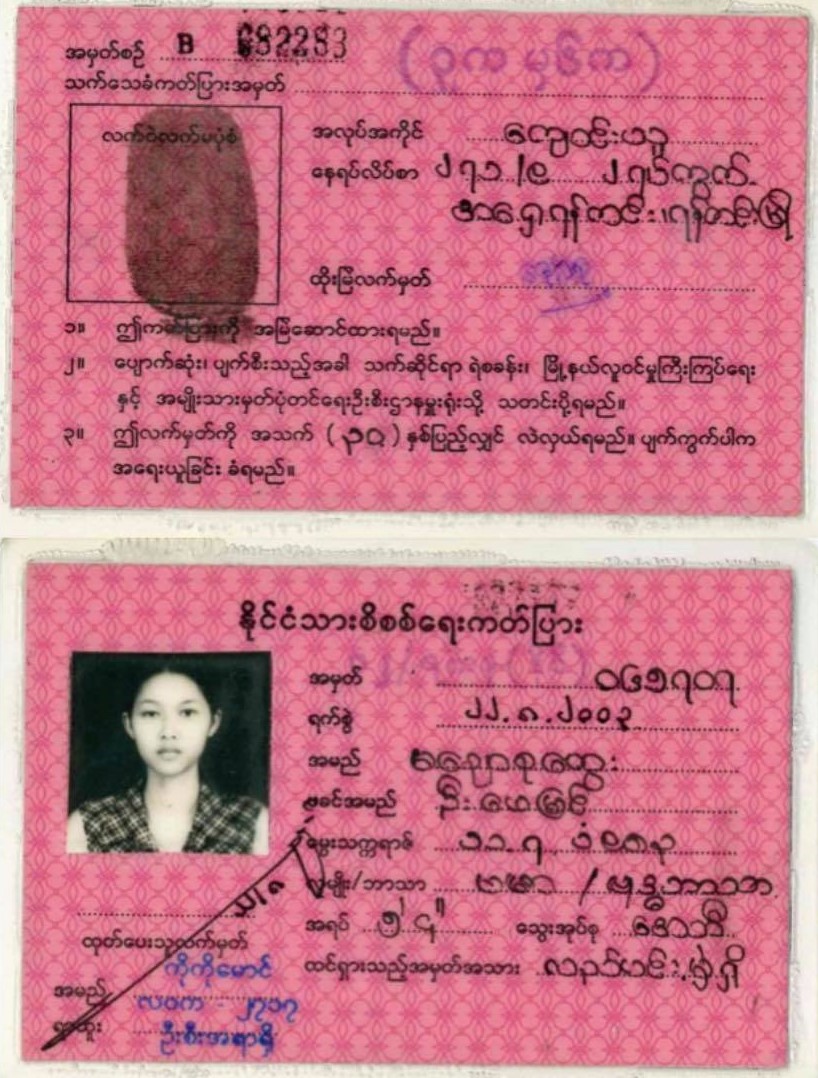 အမှတ်စဉ် B 682283
သက်သေခံကတ်ပြားအမှတ်
လက်ဝဲလက်မပုံစံ
အလုပ်အကိုင် ကျောင်းသူ
နေရပ်လိပ်စာ ၂၇၁/၉ ၂ရပ်ကွက်
အရှေ့ရန်ကင်း၊ ရန်ကင်းမြို့
ထိုးမြဲလက်မှတ်
၁။ ဤကတ်ပြားကို အမြဲဆောင်ထားရမည်။
၂။ ပျောက်ဆုံး၊ ပျက်စီးသည့်အခါ သက်ဆိုင်ရာ ရဲစခန်း၊ မြို့နယ်လူဝင်မှုကြီးကြပ်ရေး
နှင့် အမျိုးသားမှတ်ပုံတင်ရေးဦးစီးဌာနမှူးရုံးသို့ သတင်းပို့ရမည်။
၃။ ဤလက်မှတ်ကို အသက် (၃၀) နှစ်ပြည့်လျှင် လဲလှယ်ရမည်။ ပျက်ကွက်ပါက
အရေးယူခြင်း ခံရမည်။
နိုင်ငံသားစိစစ်ရေးကတ်ပြား
အမှတ် ၀၆၅၇၀၇
ရက်စွဲ ၂၂.၈.၂၀၀၃
အမည်
ဖခင်အမည် ဦးဖေမြင့်
မွေးသက္ကရာဇ် ၁၁.၇.၁၉၈၃
လူမျိုး/ဘာသာ ဗမာ / ဗုဒ္ဓဘာသာ
အရပ် ၅' ၄" သွေးအုပ်စု
ထင်ရှားသည့်အမှတ်အသား လည်ပင်းမှဲ့ရှိ
ထုတ်ပေးသူလက်မှတ်
အမည် ကိုကိုမောင်
လဝက - ၂၇၁၇
ရာထူး ဦးစီးအရာရှိ